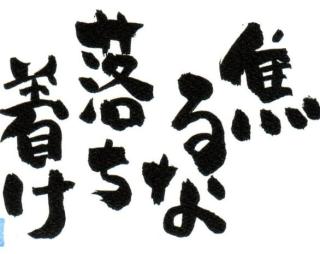 焦るな
落ち
着け